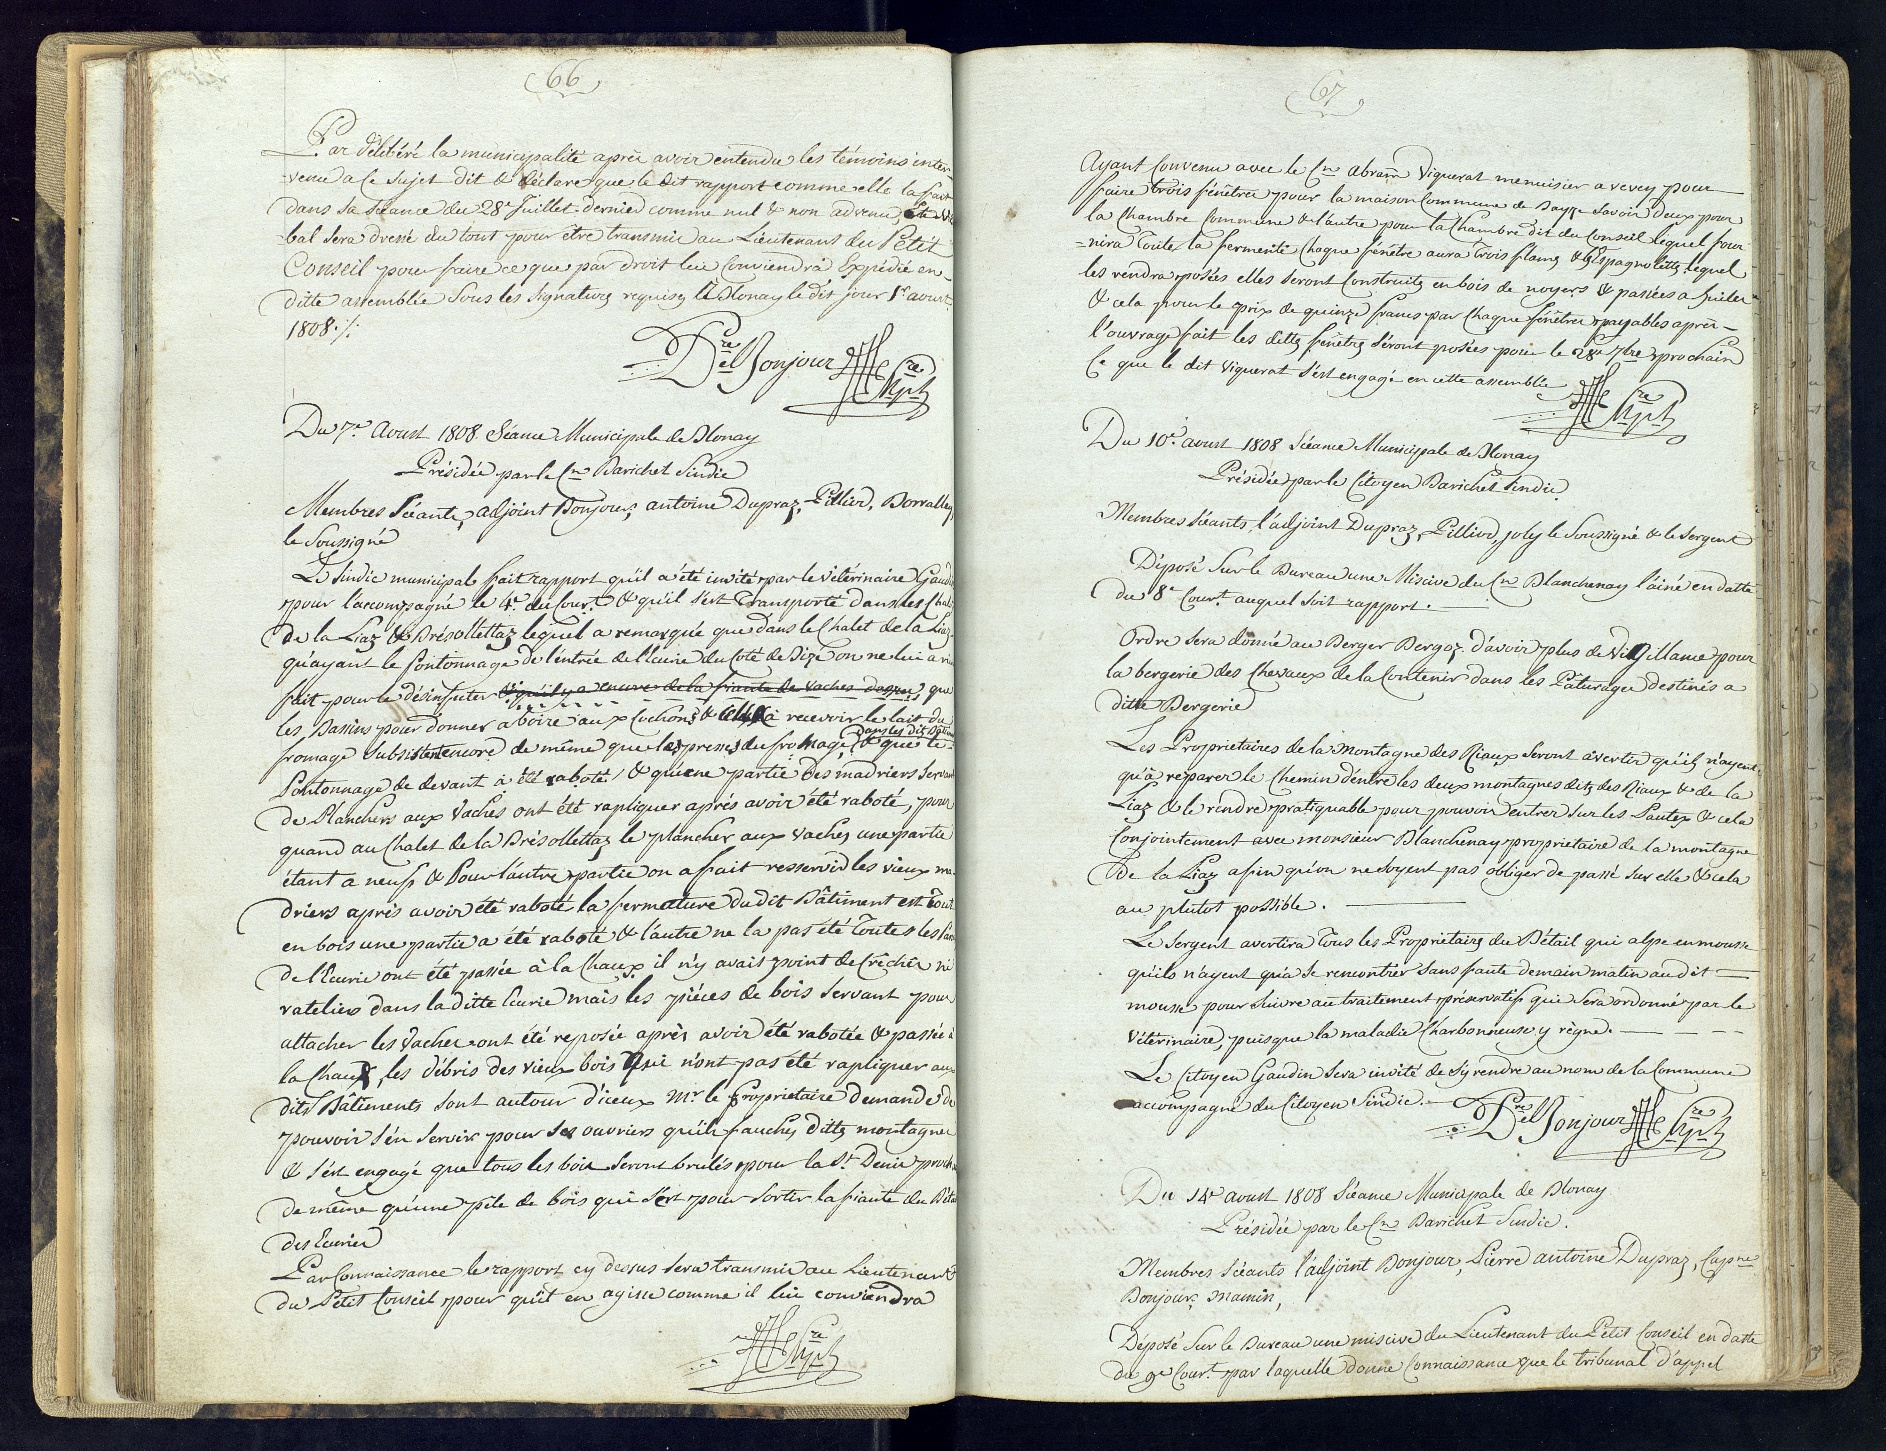 66
Par délibéré la municipalité après avoir entendu les témoins inter-
-venu a ce sujet dit & déclare que le dit rapport comme elle la fait
dans sa séance du 28e Juillet dernied comme nul & non advenu,
-bal sera dressé du tout pour être transmis au Lieutenant du Petit
Conseil pour faire ce que par droit lui Conviendra Expédié en
ditte assemblée Sous les signatures requises à Blonay le dit jour 1r aoust
1808 ./.
Dre el Bonjour
Du 7e Aoust 1808 Séance Municipale de Blonay
Présidée par le Cn Barichet Sindic
Membres Séants, adjoint Bonjour, antoine Dupraz, Pilliod, Borralley,
le Soussigné
Le Sindic municipal fait rapport qu'il a été invité par le Vétérinaire Gaudin
pour l'accompagné le 4e du Cour.t & qu'il s'est Transporté dans les Chal
de la Liaz & Brésollettaz lequel a remarqué que dans le Chalet de la Liaz
qu'ayant le Pontonnage de l'entrée de l'Ecurie du Coté de Bize on ne lui a rien
fait pour le désinfecter & qu'il y a encore de la fiante de vaches dessus, que
les Bassins pour donner a boire aux Cochons & à recevoir le lait du
fromage Subsistent encore de même que les presses du fromage, dans les dit Bâtim & que le
Pontonnage de devant a été raboté / & qu'une partie des madriers Servant
de Planchers aux Vaches ont été rapliquer après avoir été raboté, pour
quand au Chalet de la Brésollettaz le plancher aux Vaches une partie
étant a neufs & Pour l'autre partie on a fait resservid les vieux ma-
driers après avoir été raboté la fermetture du dit Bâtiment est Tout
en bois une partie a été raboté & l'autre ne la pas été Toutes les Par
de l'Ecurie ont été passée à la Chaux il n'y avait point de Crêche ni
rateliers dans la ditte Ecurie mais les pièces de bois servant pour
attacher les Vaches ont été reposée après avoir été rabotée & passée à
la Chaux, les débris des vieux bois Qui n'ont pas été rapliquer aux
dits Bâtiments sont autour d'iceux Mr le proprietaire demande de
pouvoir s'en Servir pour Ses ouvriers qu'ils fauches dittes montagnes
& s'est engagé que tous les bois seront brulés pour la St Denis proch
de même qu'une pile de bois qui s'ert pour sortir la fiante du Béta
des Ecuries
Par Connaissance le rapport cy dessus sera transmis au Lieutenant
du Petit Conseil pour qu'il en agisse comme il lui conviendra
67
Ayant Convenu avec le Cn Abram Viguerat menuisier a vevey pour
faire trois fénêtres pour la maison Commune de Bayse Savoir Deux pour
la Chambre Commune & l'autre pour la Chambre dit du Conseil lequel four
-nira Toute la fermente Chaque fénêtre aura trois flams & Espagnolettes lequel
les rendra posées elles seront Construites en bois de noyers & passées a huiler
& cela pour le prix de quinze francs par Chaque fénêtres payables après
l'ouvrage fait les dittes fenêtres séront posées pour le 28e 7bre prochain
Ce que le dit viguerat s'est engagé en cette assemblée
Du 10e aoust 1808 Séance Municipale de Blonay
Présidée par le Citoyen Barichet Sindic.
Membres Séants, l'adjoint Dupraz, Pilliod, joly le Soussigné & le Sergent
Déposé Sur le Bureau une Miscive du Cn Blanchenay l'ainé en datte
du 8e Cour.t auquel soit rapport.
Ordre sera donné au Berger Bergoz, d'avoir plus de Vigillance pour
la bergerie des Chevaux de la Contenir dans les Pâturages destinés a
ditte Bergerie
Les Proprietaires de la montagne des Riaux Seront avertis qu'ils n'ayent
qu'à reparer le Chemin d'entre les deux montagnes dites des Riaux & de la
Liaz & le rendre pratiquable pour pouvoir entrer sur les Pautex & cela
Conjointement avec monsieur Blanchenay proprietaire de la montagne
de la Liaz afin qu'on ne soyent pas obliger de passé sur elle & cela
au plutot possible.
Le Sergent avertira Tous les Proprietaires du Bétail qui alpe en mousse
qu'ils n'ayent qu'a se rencontrer sans faute demain matin au dit
mousse pour Suivre au traitement préservatif qui Sera ordonné par le
Vétérinaire, puisque la maladie Charbonneuse y règne.
Le Citoyen Gaudin Sera invité de s'y rendre au nom de la Commune
accompagné du Citoyen Sindic.
Dre el Bonjour
Du 14e aoust 1808 Séance Municipale de Blonay
Présidée par le Cn Barichet Sindic.
Membres Séants l'adjoint Bonjour, Pierre antoine Dupraz, Capne
Bonjour, mamin,
Déposé Sur le Bureau une miscive du Lieutenant du Petit Conseil en datte
du 9e Cour.t par laquelle donne Connaissance que le tribunal d'appel